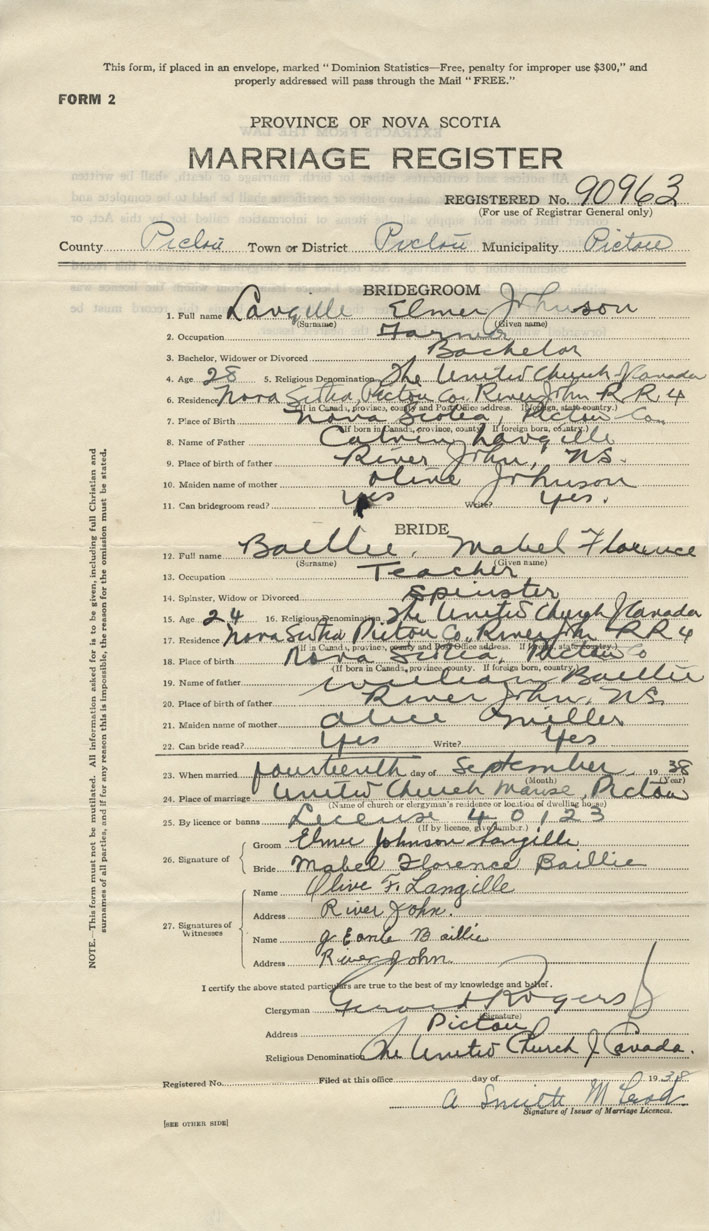 This form, if placed in an envelope, marked "Dominion Statistics—Free, penalty for improper use $300," and
properly addressed will pass through the Mail "FREE."
FORM 2
PROVINCE OF NOVA SCOTIA
MARRIAGE REGISTER
REGISTERED No. 90963
(For use of Registrar General only)
County Pictou Town or District Pictou Municipality Pictou
BRIDEGROOM
1. Full name Langille Elmer Johnson
(Surname) (Given name)
2. Occupation Farmer
3. Bachelor, Widower or Divorced Bachelor
4. Age 28 5. Religious Denomination The United Church of Canada
6. Residence Nova Scotia, Pictou Co. River John RR 4
(If in Canada, province, county and Post Office address. If foreign, state country.)
7. Place of Birth Nova Scotia, Pictou Co.
(If born in Canada, province, county. If foreign born, country)
8. Name of Father Calvin Langille
9. Place of birth of father River John, NS.
10. Maiden name of mother Olive Johnson
11. Can bridegroom read? Yes Write? Yes.
BRIDE
12. Full name Baillie, Mabel Florence
(Surname) (Given name)
13. Occupation Teacher
14. Spinster, Widow or Divorced Spinster
15. Age 24 16. Religious Denomination The United Church of Canada
17. Residence Nova Scotia Pictou Co. River John RR 4
(If in Canada, province, county and Post Office address. If foreign, state country.)
18. Place of birth Nova Scotia, Pictou Co
(If born in Canada, province, county. If foreign born, country)
19. Name of father William Baillie
20. Place of birth of father River John, NS.
21. Maiden name of mother Alice Miller
22. Can bride read? Yes Write? Yes
23. When married fourteenth day of September, 1938
(Month) (Year)
24. Place of marriage United Church Manse, Pictou
(Name of church or clergyman's residence or location of dwelling house)
25. By licence or banns License 40123
(If by licence, give number.)
26. Signature of
Groom Elmer Johnson Langille
Bride Mabel Florence Baillie
27. Signatures of Witnesses
Name Olive F. Langille
Address River John.
Name J Earle Baillie
Address River John.
I certify the above stated particulars are true to the best of my knowledge and belief.
Clergyman Gerard Rogers
(Signature)
Address Pictou
Religious Denomination The United Church of Canada.
Registered No. Filed at this office day of 1938
A Smith McLeod
Signature of Issuer of Marriage Licences.
[SEE OTHER SIDE]
NOTE.—This form must not be mutilated. All information asked for is to be given, including full Christian and
surnames of all parties, and if for any reason this is impossible, the reason for the omission must be stated.